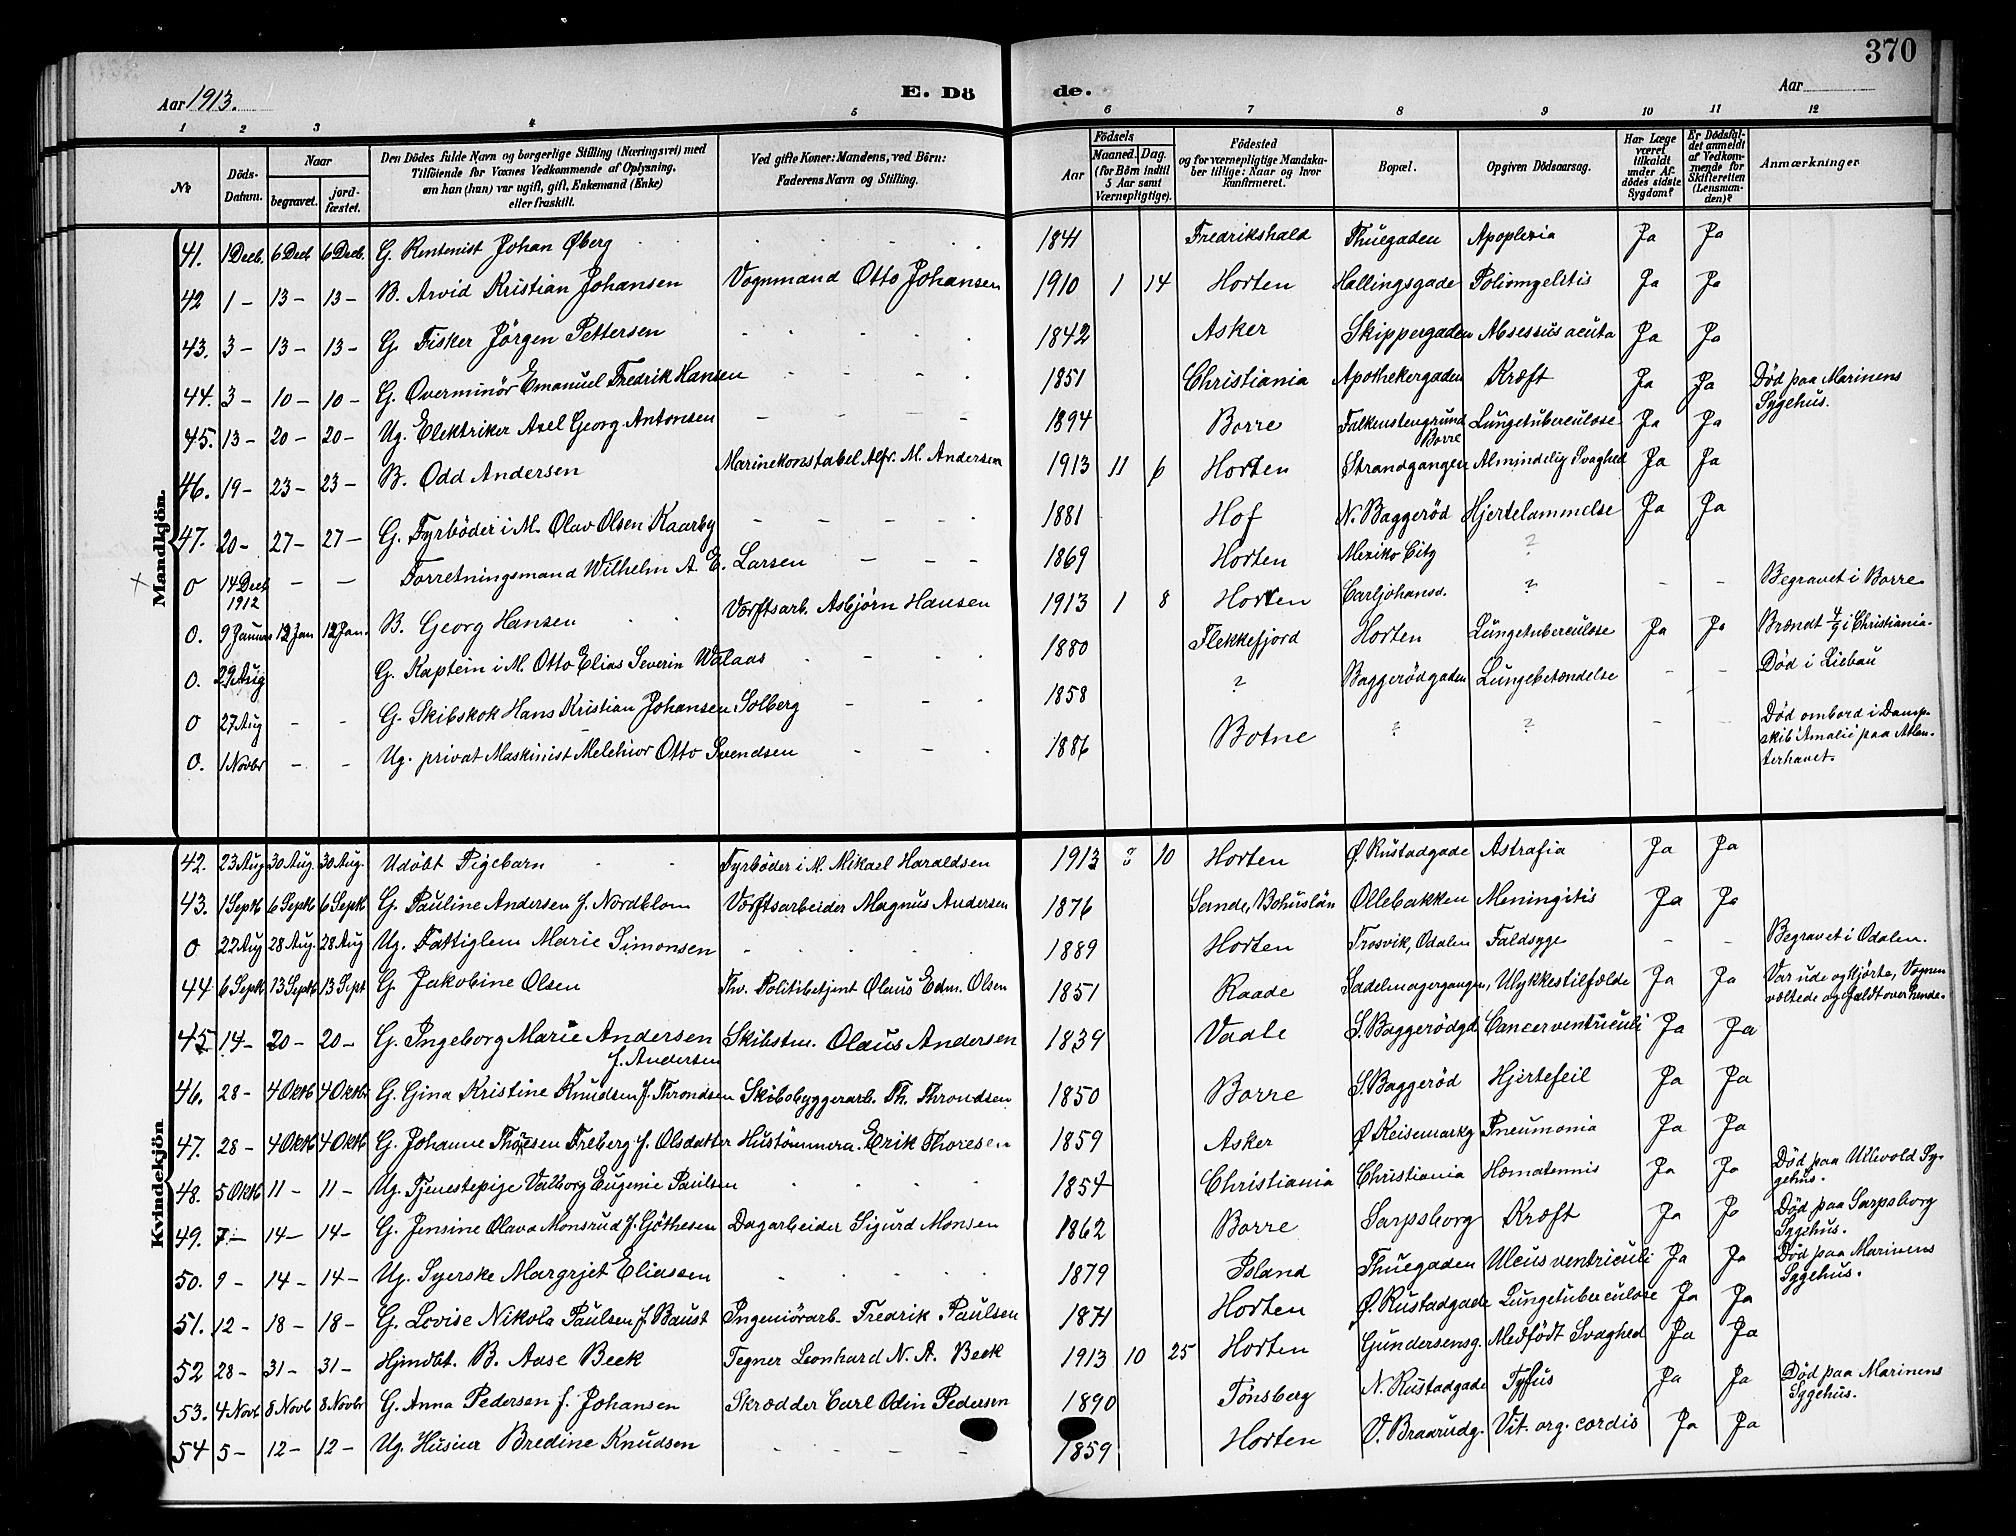 370
Aar 1913.
E. Dö
de.
Aar
1 2 3 4 5 6 7 8 9 10 11 12
No
Döds-
Datum.
Naar
begravet.
jord-
fæstet.
Den Dödes fulde Navn og borgerlige Stilling (Næringsvei) med
Tilföiende for Voxnes Vedkommende af Oplysning,
om han (hun) var ugift, gift, Enkemand (Enke)
eller fraskilt.
Ved gifte Koner: Mandens, ved Börn:
Faderens Navn og Stilling.
Födsels
Aar
Maaned. Dag.
(for Börn indtil
5 Aar samt
Værnepligtige).
Födested
og for værnepligtige Mandska-
ber tillige: Naar og hvor
konfirmeret.
Bopæl.
Opgiven Dödsaarsag.
Har Læge
været
tilkaldt
under Af-
dödes sidste
Sygdom?
Er Dödsfal-
det anmeldt
af Vedkom-
mende for
Skifteretten
(Lensman-
den)?
Anmærkninger
Mandkjön.
41. 1 Decb. 6 Decb 6 Decb. G. Rentenist Johan Øberg 1841 Fredrikshald Thuegaden Apoplexia Ja Ja
42 1 – 13 – 13 – B. Arvid Kristian Johansen Vognmand Otto Johansen 1910 1 14 Horten Hallingsgade Poliomyelitis Ja Ja
43. 3 – 13 – 13 – G. Fisker Jörgen Pettersen 1842 Asker Skippergaden Absessus acuta Ja Ja
44. 3 – 10 – 10 – G. Overminör Emanuel Fredrik Hansen 1851 Christiania Apothekergaden Kræft Ja Ja Död paa Marinens
Sygehus.
45. 13 – 20 – 20 – Ug. Elektriker Axel Georg Antonsen 1894 Borre Falkenstengrund Lungetuberculose Ja Ja
Borre
46. 19 – 23 – 23 – B. Odd Andersen Marinekonstabel Alfr. M. Andersen 1913 11 6 Horten Strandgangen Almindelig Svaghed Ja Ja
47. 20 – 27 – 27 – G. Fyrböder i M. Olav Olsen Kaarby 1881 Hof N. Baggerød Hjertelammelse Ja Ja
x 0 14 Decb – – Forretningsmand Wilhelm A. E. Larsen 1869 Horten Mexiko City ?
1912
0. 9 Januar 12 Jan 12 Jan. B. Georg Hansen Værftsarb. Asbjørn Hansen 1913 1 8 Horten Carljohansv. ? – – Begravet i Borre
0. 29 Aug G. Kaptein i M. Otto Elias Severin Walaas 1880 Flekkefjord Horten Lungetuberculose Ja Ja Brændt 4/9 i Christiania
0 27 Aug – – G. Skibskok Hans Kristian Johansen Solberg 1858 ? Baggerödgaden Lungebetændelse – – Död i Liebau
0. 1 Novbr – – Ug. privat Maskinist Melchior Otto Svendsen 1886 Botne ? ? – – Död ombord i Damp-
skib Amalie paa Atlan-
terhavet.
Kvindekjön
42. 23 Aug 30 Aug. 30 Aug. Udöbt Pigebarn Fyrböder i M. Mikael Haraldsen 1913 2 10 Horten Ø. Rustadgade Astrafia Ja Ja
43. 1 Septb 6 Septb 6 Septb G. Pauline Andersen f. Nordblom Værftsarbeider Magnus Andersen 1876 Sande, Bohuslän Ollebakken Meningitis Ja Ja
0 22 Aug 28 Aug. 28 Aug Ug. Fattiglem Marie Simonsen 1889 Horten Trosvik, Odalen Faldsyge – – Begravet i Odalen.
44 6 Septb 13 Septb 13 Sept G. Jakobine Olsen Fhv. Politibetjent Olaus Edm. Olsen 1851 Raade Sadelmagergangen, Ulykkestilfælde Ja Ja Var ude og kjörte, Vognen
væltede og faldt over hende.
45. 14 – 20 – 20 – G. Ingeborg Marie Andersen Skibstm. Olaus Andersen 1839 Vaale S. Baggerödgd Cancer ventriculi Ja Ja
f. Andersen
46. 28 – 4 Oktb 4 Oktbr G. Gina Kristine Knudsen f. Throndsen Skibsbyggerarb. Th. Throndsen 1850 Borre S. Baggeröd Hjertefeil Ja Ja
47. 28 – 4 Oktb 4 Oktb G. Johanne Thoresen Freberg f. Olsdatter Hustömmerm. Erik Thoresen 1859 Asker Ø. Keisemarkg Pneumonia Ja Ja
48. 5 Oktb 11 – 11 – Ug. Tjenestepige Valborg Eugenie Paulsen 1854 Christiania Christiania Hæmatemis Ja Ja Död paa Ullevold Sy-
gehus.
49. 7 – 14 – 14 – G. Jensine Olava Monsrud f. Göthesen Dagarbeider Sigurd Monsen 1862 Borre Sarpsborg Kræft Ja Ja Död paa Sarpsborg
Sygehus.
50. 9 – 14 – 14 – Ug. Syerske Margrjet Eliassen 1879 Island Thuegaden Ulcus ventriculi Ja Ja Död paa Marinens
Sygehus.
51. 12 – 18 – 18 – G. Lovise Nikola Paulsen f. Baust Ingeniörarb. Fredrik Paulsen 1871 Horten Ø. Rustadgade Lungetuberculose Ja Ja
52 28 – 31 – 31 – Hjmdbt. B. Aase Beck Tegner Leonhard N. A. Beck 1913 10 25 Horten Gundersensg. Medfödt Svaghed Ja Ja
53. 4 Novb 8 Novb 8 Novbr G. Anna Pedersen f. Johansen Skrædder Carl Odin Pedersen 1890 Tønsberg N. Rustadgade Tyfus Ja Ja Död paa Marinens
Sygehus.
54 5 – 12 – 12 – Ug. Husier Bredine Knudsen 1859 Horten V. Braarudg. Vit. org. cordis Ja Ja